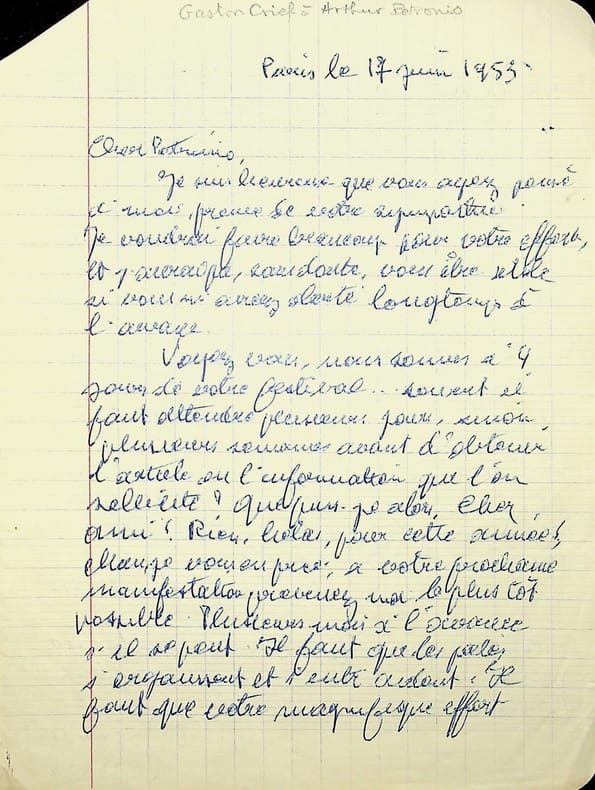 Gaston Criel à Arthur Petronio
Paris le 17 juin 1953
Cher Petronio,
Je suis heureux que vous ayez pensé
à moi, preuve de votre sympathie.
Je voudrai faire beaucoup pour votre effort,
et j'aurai pu, sans doute, vous être utile
si vous m'aviez alerté longtemps à
l'avance.
Voyez vous, nous sommes à 4
jours de votre festival... souvent il
faut attendre plusieurs jours, sinon
plusieurs semaines avant d'obtenir
l'article ou l'information que l'on
sollicite? Que puis-je alors, Cher
ami? Rien, hélas, pour cette année!,
mais, je vous en prie, à votre prochaine
manifestation prévenez moi le plus tôt
possible. Plusieurs mois à l'avance
s'il se peut. Il faut que les poètes
s'organisent et s'entr'aident. Il
faut que votre magnifique effort